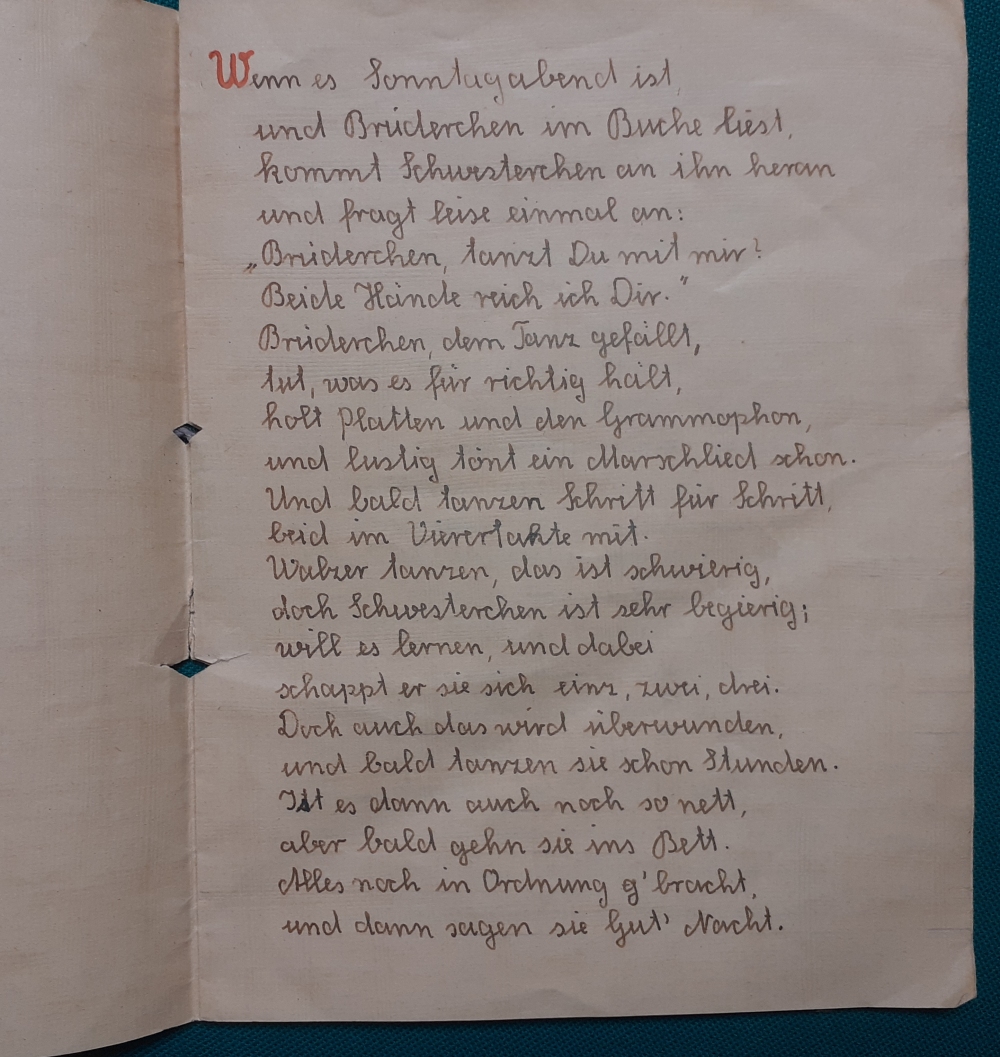 Wenn es Sonntagabend ist,
und Brüderchen im Buche liest,
kommt Schwesterchen an ihn heran
und fragt leise einmal an:
„Brüderchen, tanzt Du mit mir?
Beide Hände reich ich Dir.“
Brüderchen, dem Tanz gefällt,
tut, was es für richtig hält,
holt Platten und den Grammophon,
und lustig tönt ein Marschlied schon.
Und bald tanzen Schritt für Schritt,
beid im Vierertakte mit.
Walzer tanzen, das ist schwierig,
doch Schwesterchen ist sehr begierig;
will es lernen, und dabei
schappt er sie sich einz, zwei, drei.
Doch auch das wird überwunden,
und bald tanzen sie schon Stunden.
Ist es dann auch noch so nett,
aber bald gehn sie ins Bett.
Alles noch in Ordnung g'bracht,
und dann sagen sie Gut' Nacht.